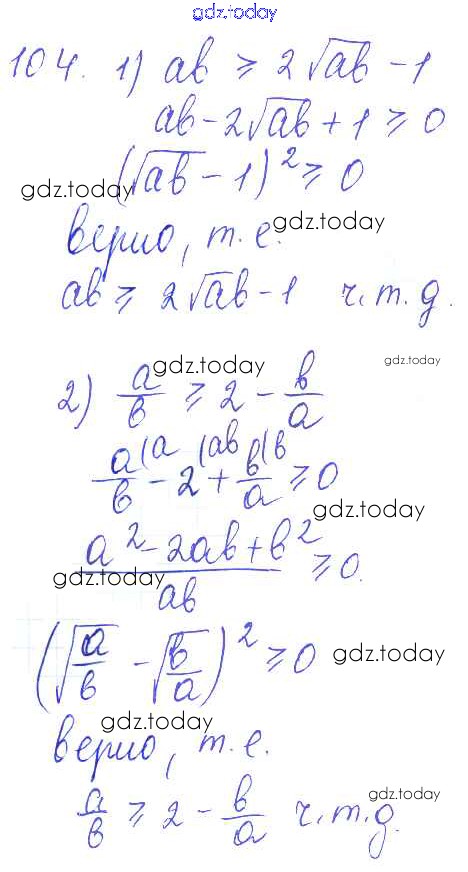 gdz.today
104. 1) ab ≥ 2√ab - 1
ab - 2√ab + 1 ≥ 0
(√ab - 1)² ≥ 0
gdz.today
gdz.today
верно, т. е.
ab ≥ 2√ab - 1 ч.т.д.
gdz.today
gdz.today
2) a/b ≥ 2 - b/a
a/b (a - 2 (ab + b/a (b ≥ 0
gdz.today
(a² - 2ab + b²)/ab ≥ 0.
gdz.today
(√a/b - √b/a)² ≥ 0 gdz.today
gdz.today
верно, т. е.
gdz.today
a/b ≥ 2 - b/a ч.т.д.